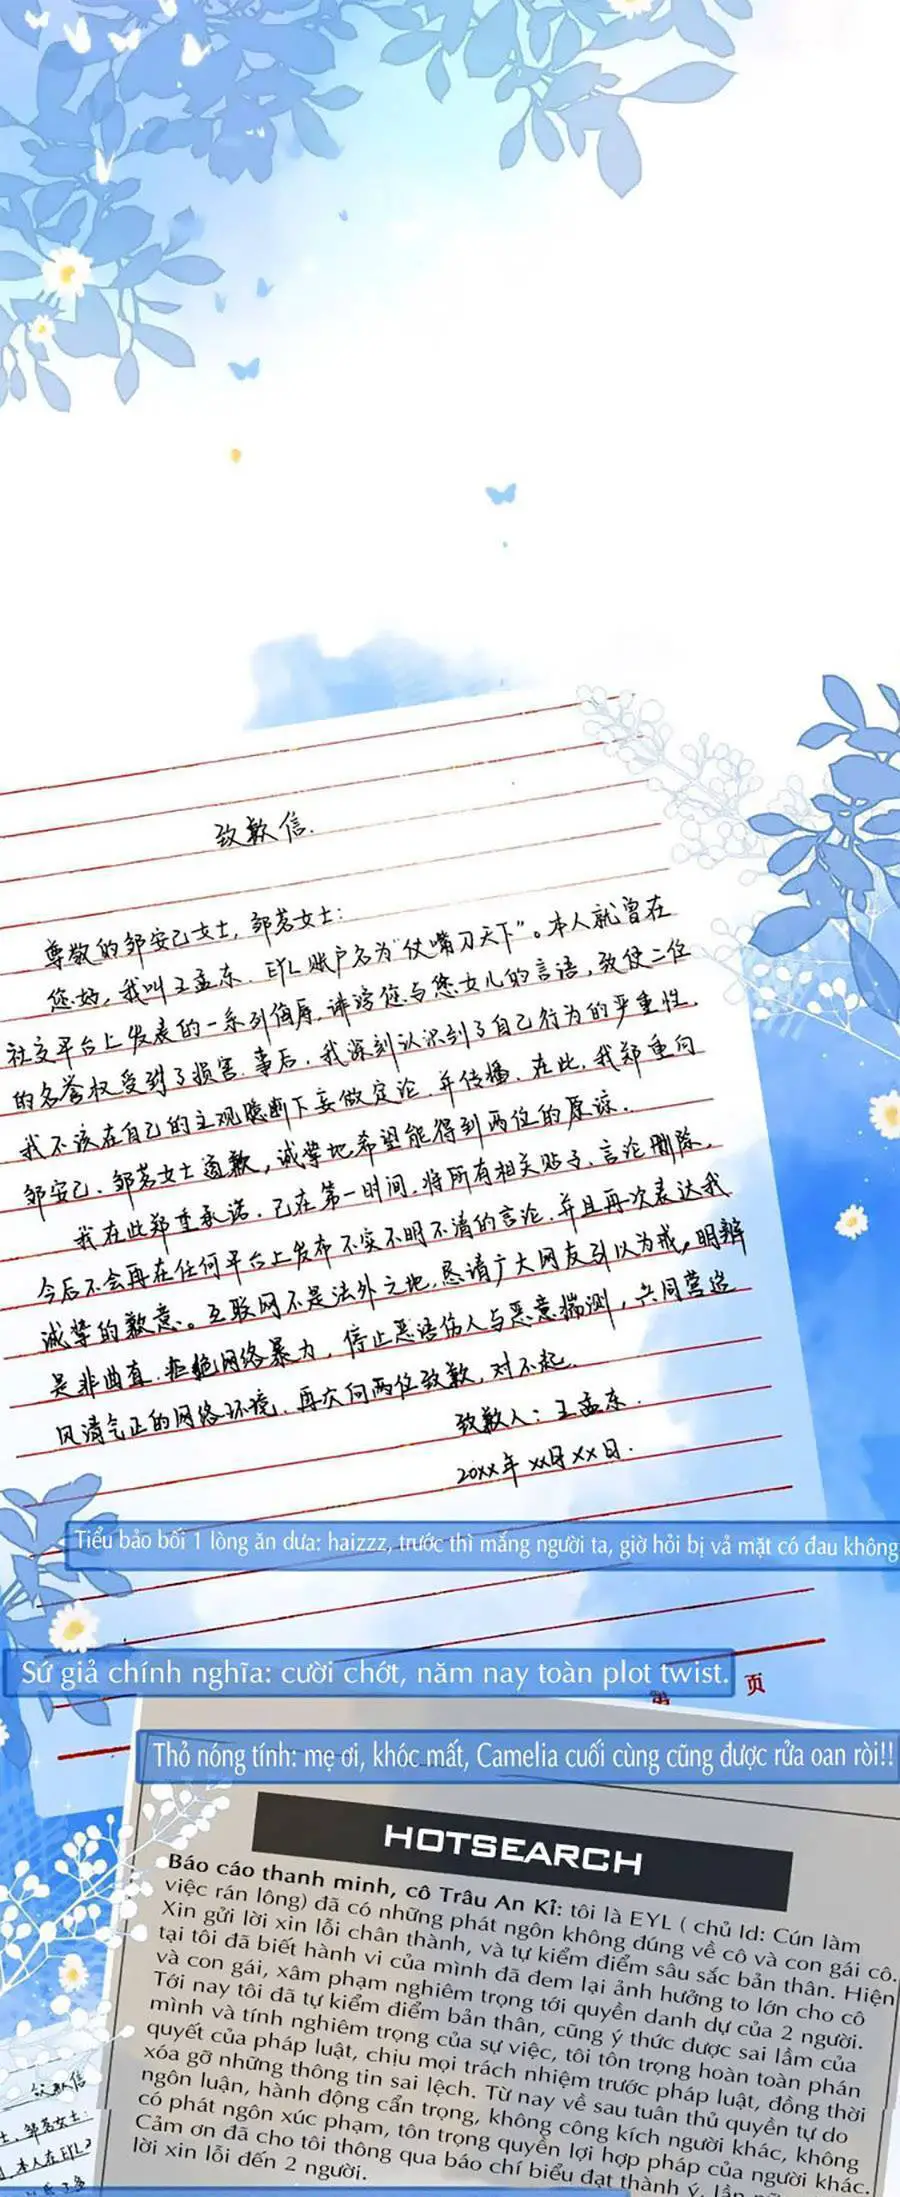 致歉信.
尊敬的邹安己女士,邹茗女士:
您好,我叫王孟东.EYL账户名为“仗嘴刃天下”。本人就曾在
社交平台上发表的一系列侮辱,诽谤您与您女儿的言语,致使二位
的名誉权受到了损害.事后,我深刻认识到了自己行为的严重性.
我不该在自己的主观臆断下妄做定论,并传播,在此,我郑重向
邹安己、邹茗女士道歉,诚挚地希望能得到两位的原谅.
我在此郑重承诺,已在第一时间,将所有相关贴子、言论删除.
今后不会再在任何平台上发布不实不明不清的言论,并且再次表达我
诚挚的歉意。互联网不是法外之地.恳请广大网友引以为戒,明辨
是非曲直.拒绝网络暴力,停止恶语伤人与恶意揣测,共同营造
风清气正的网络环境.再次向两位致歉,对不起.
致歉人:王孟东.
20xx年xx月xx日.
Tiểu bảo bối 1 lòng ăn dưa: haizzz, trước thì mắng người ta, giờ hỏi bị vả mặt có đau không
Sứ giả chính nghĩa: cười chớt, năm nay toàn plot twist.
页
Thỏ nóng tính: mẹ ơi, khóc mất, Camelia cuối cùng cũng được rửa oan ròi!!
HOTSEARCH
Báo cáo thanh minh, cô Trâu An Kỉ: tôi là EYL ( chủ Id: Cún làm
việc rán lông) đã có những phát ngôn không đúng về cô và con gái cô.
Xin gửi lời xin lỗi chân thành, và tự kiểm điểm sâu sắc bản thân. Hiện
tại tôi đã biết hành vi của mình đã đem lại ảnh hưởng to lớn cho cô
và con gái, xâm phạm nghiêm trọng tới quyền danh dự của 2 người.
Tới nay tôi đã tự kiểm điểm bản thân, cũng ý thức được sai lầm của
mình và tính nghiêm trọng của sự việc, tôi tôn trọng hoàn toàn phán
quyết của pháp luật, chịu mọi trách nhiệm trước pháp luật, đồng thời
xóa gỡ những thông tin sai lệch. Từ nay về sau tuân thủ quyền tự do
ngôn luận, hành động cẩn trọng, không công kích người khác, không
có phát ngôn xúc phạm, tôn trọng quyền lợi hợp pháp của người khác.
Cảm ơn đã cho tôi thông qua báo chí biểu đạt thành ý, lần
lời xin lỗi đến 2 người.
致歉信
邹茗女士:
本人在EYL